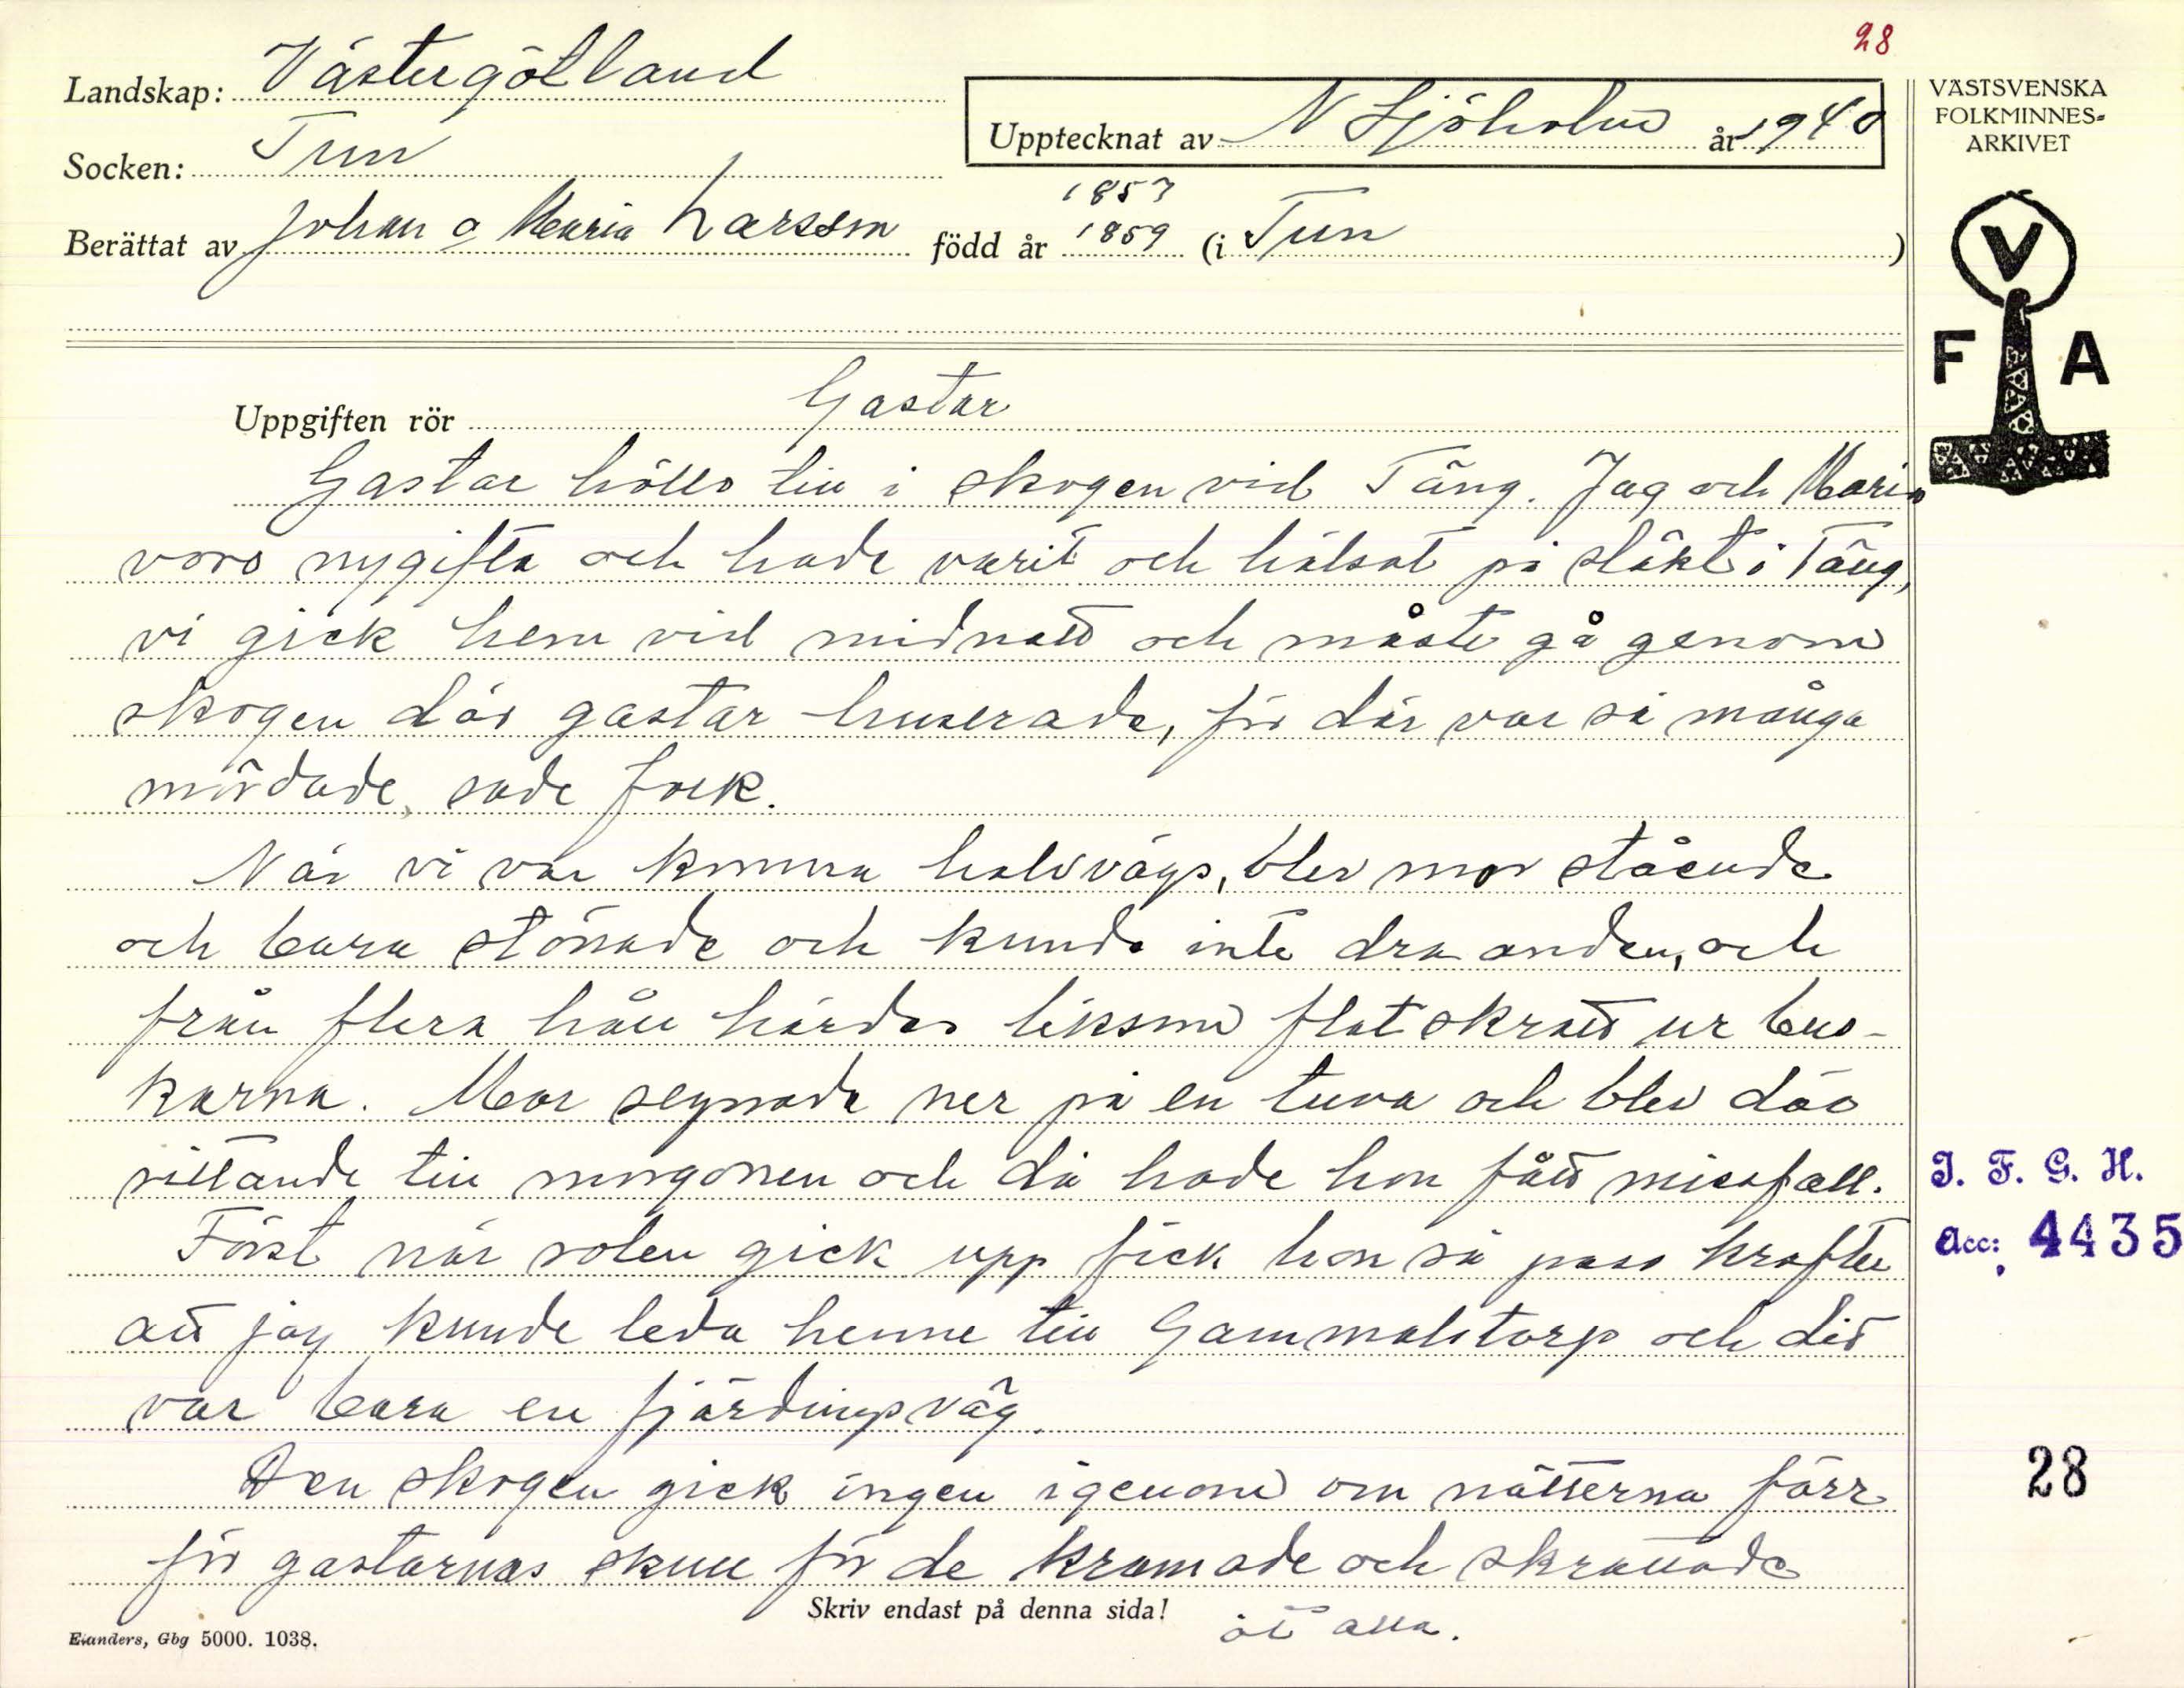 28
Landskap: Västergötland
Socken: Tun
Upptecknat av N Sjöholm år 1940
Berättat av Johan o Maria Larsson född år 1857 1859 (i Tun)
VÄSTSVENSKA
FOLKMINNES-
ARKIVET
V
F A
Uppgiften rör Gastar
Gastar höllo till i skogen vid Täng. Jag och Maria
voro nygifta och hade varit och hälsat på släkt i Täng,
vi gick hem vid midnatt och måste gå genom
skogen där gastar huserade, för där var så många
mördade, sade folk.
När vi var komna halvvägs, blev mor stående
och bara stönade och kunde inte dra andan, och
från flera håll hördes liksom flatskratt ur bus-
karna. Mor segnade ner på en tuva och blev där
sittande till morgonen och då hade hon fått missfall.
Först när solen gick upp fick hon så pass krafter
att jag kunde leda henne till Gammalstorp och dit
var bara en fjärdingsväg.
Den skogen gick ingen igenom om nätterna förr
för gastarnas skull för de kramade och skrattade
åt alla.
Skriv endast på denna sida!
Elanders, Gbg 5000. 1038.
I. F. G. H.
Acc: 4435
28